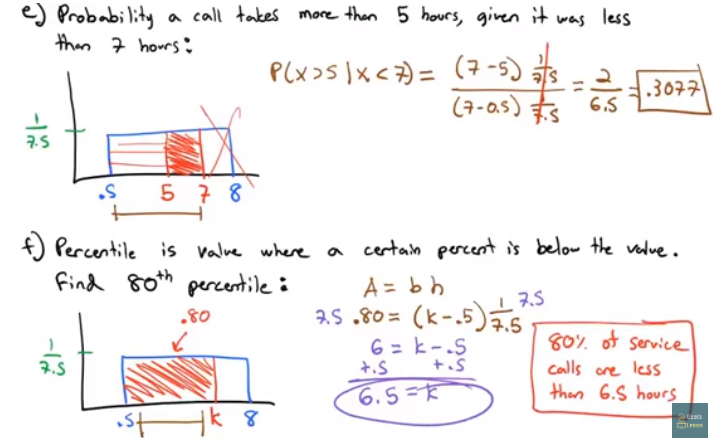 e) Probability a call takes more than 5 hours, given it was less
than 7 hours:
P(x>5|x<7) = (7-5) 1/7.5 / (7-0.5) 1/7.5 = 2/6.5 = .3077
1/7.5
.5 5 7 8
f) Percentile is value where a certain percent is below the value.
Find 80th percentile:
A = b h
.80
7.5 .80 = (k-.5) 1/7.5 7.5
1/7.5
6 = k-.5
+.5 +.5
6.5 = k
80% of service
calls are less
than 6.5 hours
.5 k 8